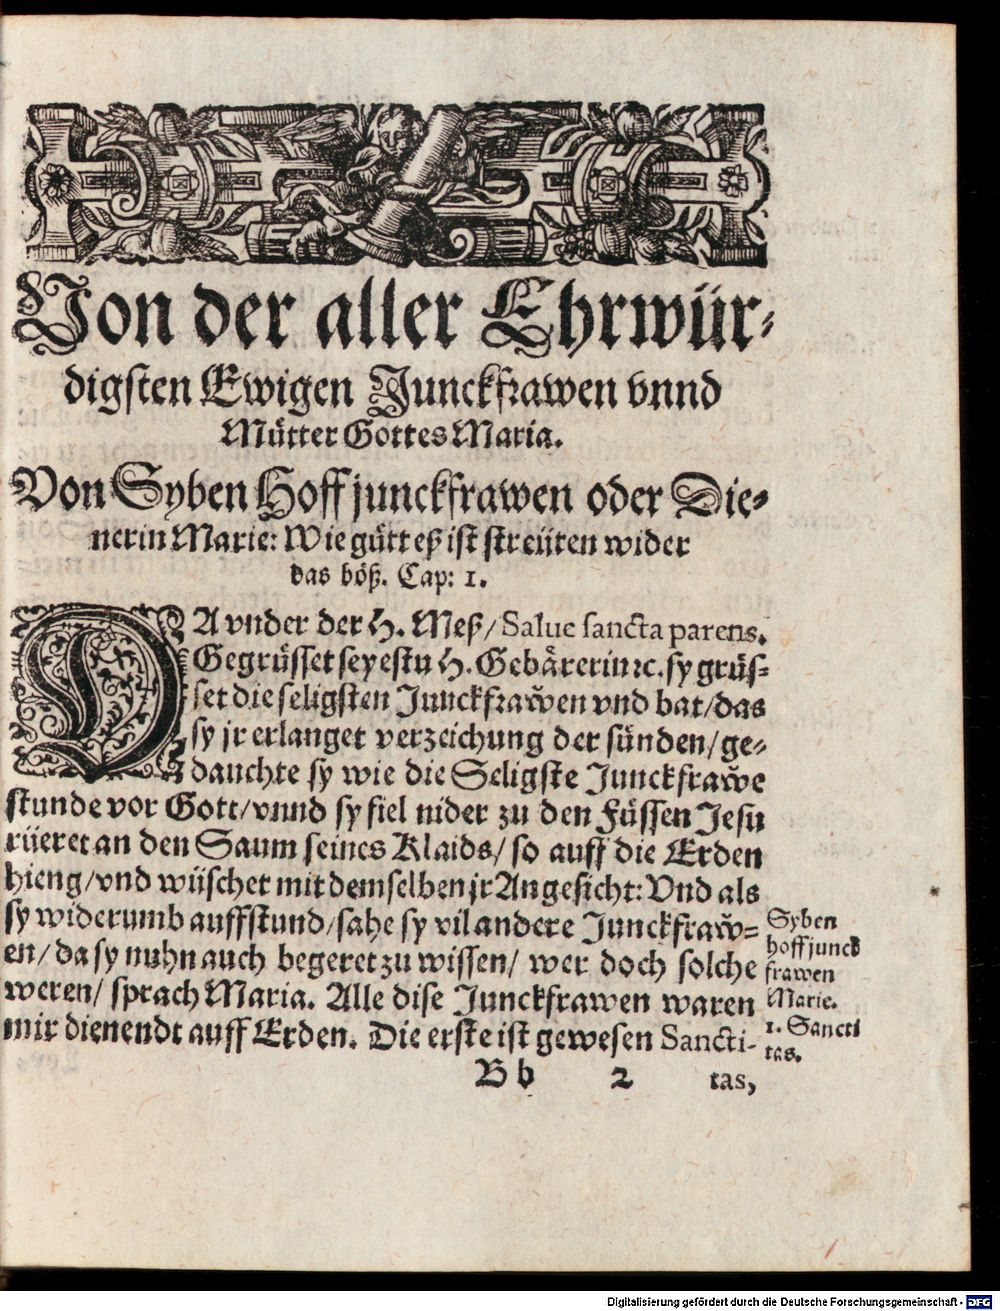 Von der aller Ehrwür⸗
digsten Ewigen Junckfrawen vnnd
Mütter Gottes Maria.
Von Syben Hoffjunckfrawen oder Die⸗
nerin Marie: Wie gütt eß ist streüten wider
das böß. Cap: 1.
DA vnder der H. Meß/ Salue sancta parens.
Gegrüsset seyestu H. Gebärerin ꝛc. sy grüs⸗
set die seligsten Junckfraw̃en vnd bat/ das
sy jr erlanget verzeichung der sünden/ ge⸗
dauchte sy wie die Seligste Junckfraw̃e
stunde vor Gott/ vnnd sy fiel nider zu den Füssen Jesu
rüeret an den Saum seines Klaids/ so auff die Erden
hieng/ vnd wüschet mit demselben jr Angesicht: Vnd als
sy widerumb auffstund/ sahe sy vil andere Junckfraw̃⸗
en/ da sy nuhn auch begeret zu wissen/ wer doch solche
weren/ sprach Maria. Alle dise Junckfrawen waren
mir dienendt auff Erden. Die erste ist gewesen Sancti-
Syben
hoffjunck
frawen
Marie.
1. Sancti
tas.
B b 2 tas,
Digitalisierung gefördert durch die Deutsche Forschungsgemeinschaft - DFG